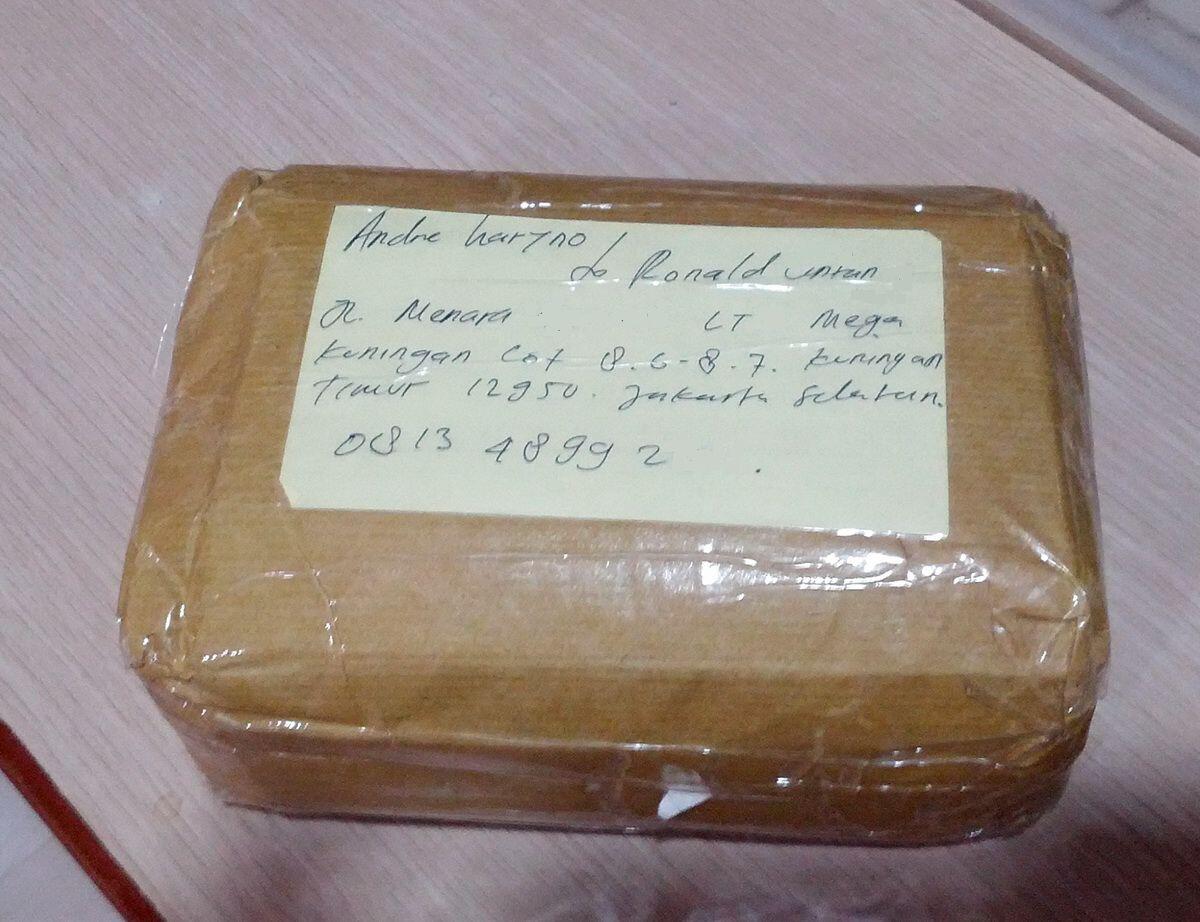 Andre haryno /
do Ronald untan
JL. Menara LT Mega
Kuningan Lot 8.6-8.7. Kuningan
Timur 12950. Jakarta Selatan.
0813 48992